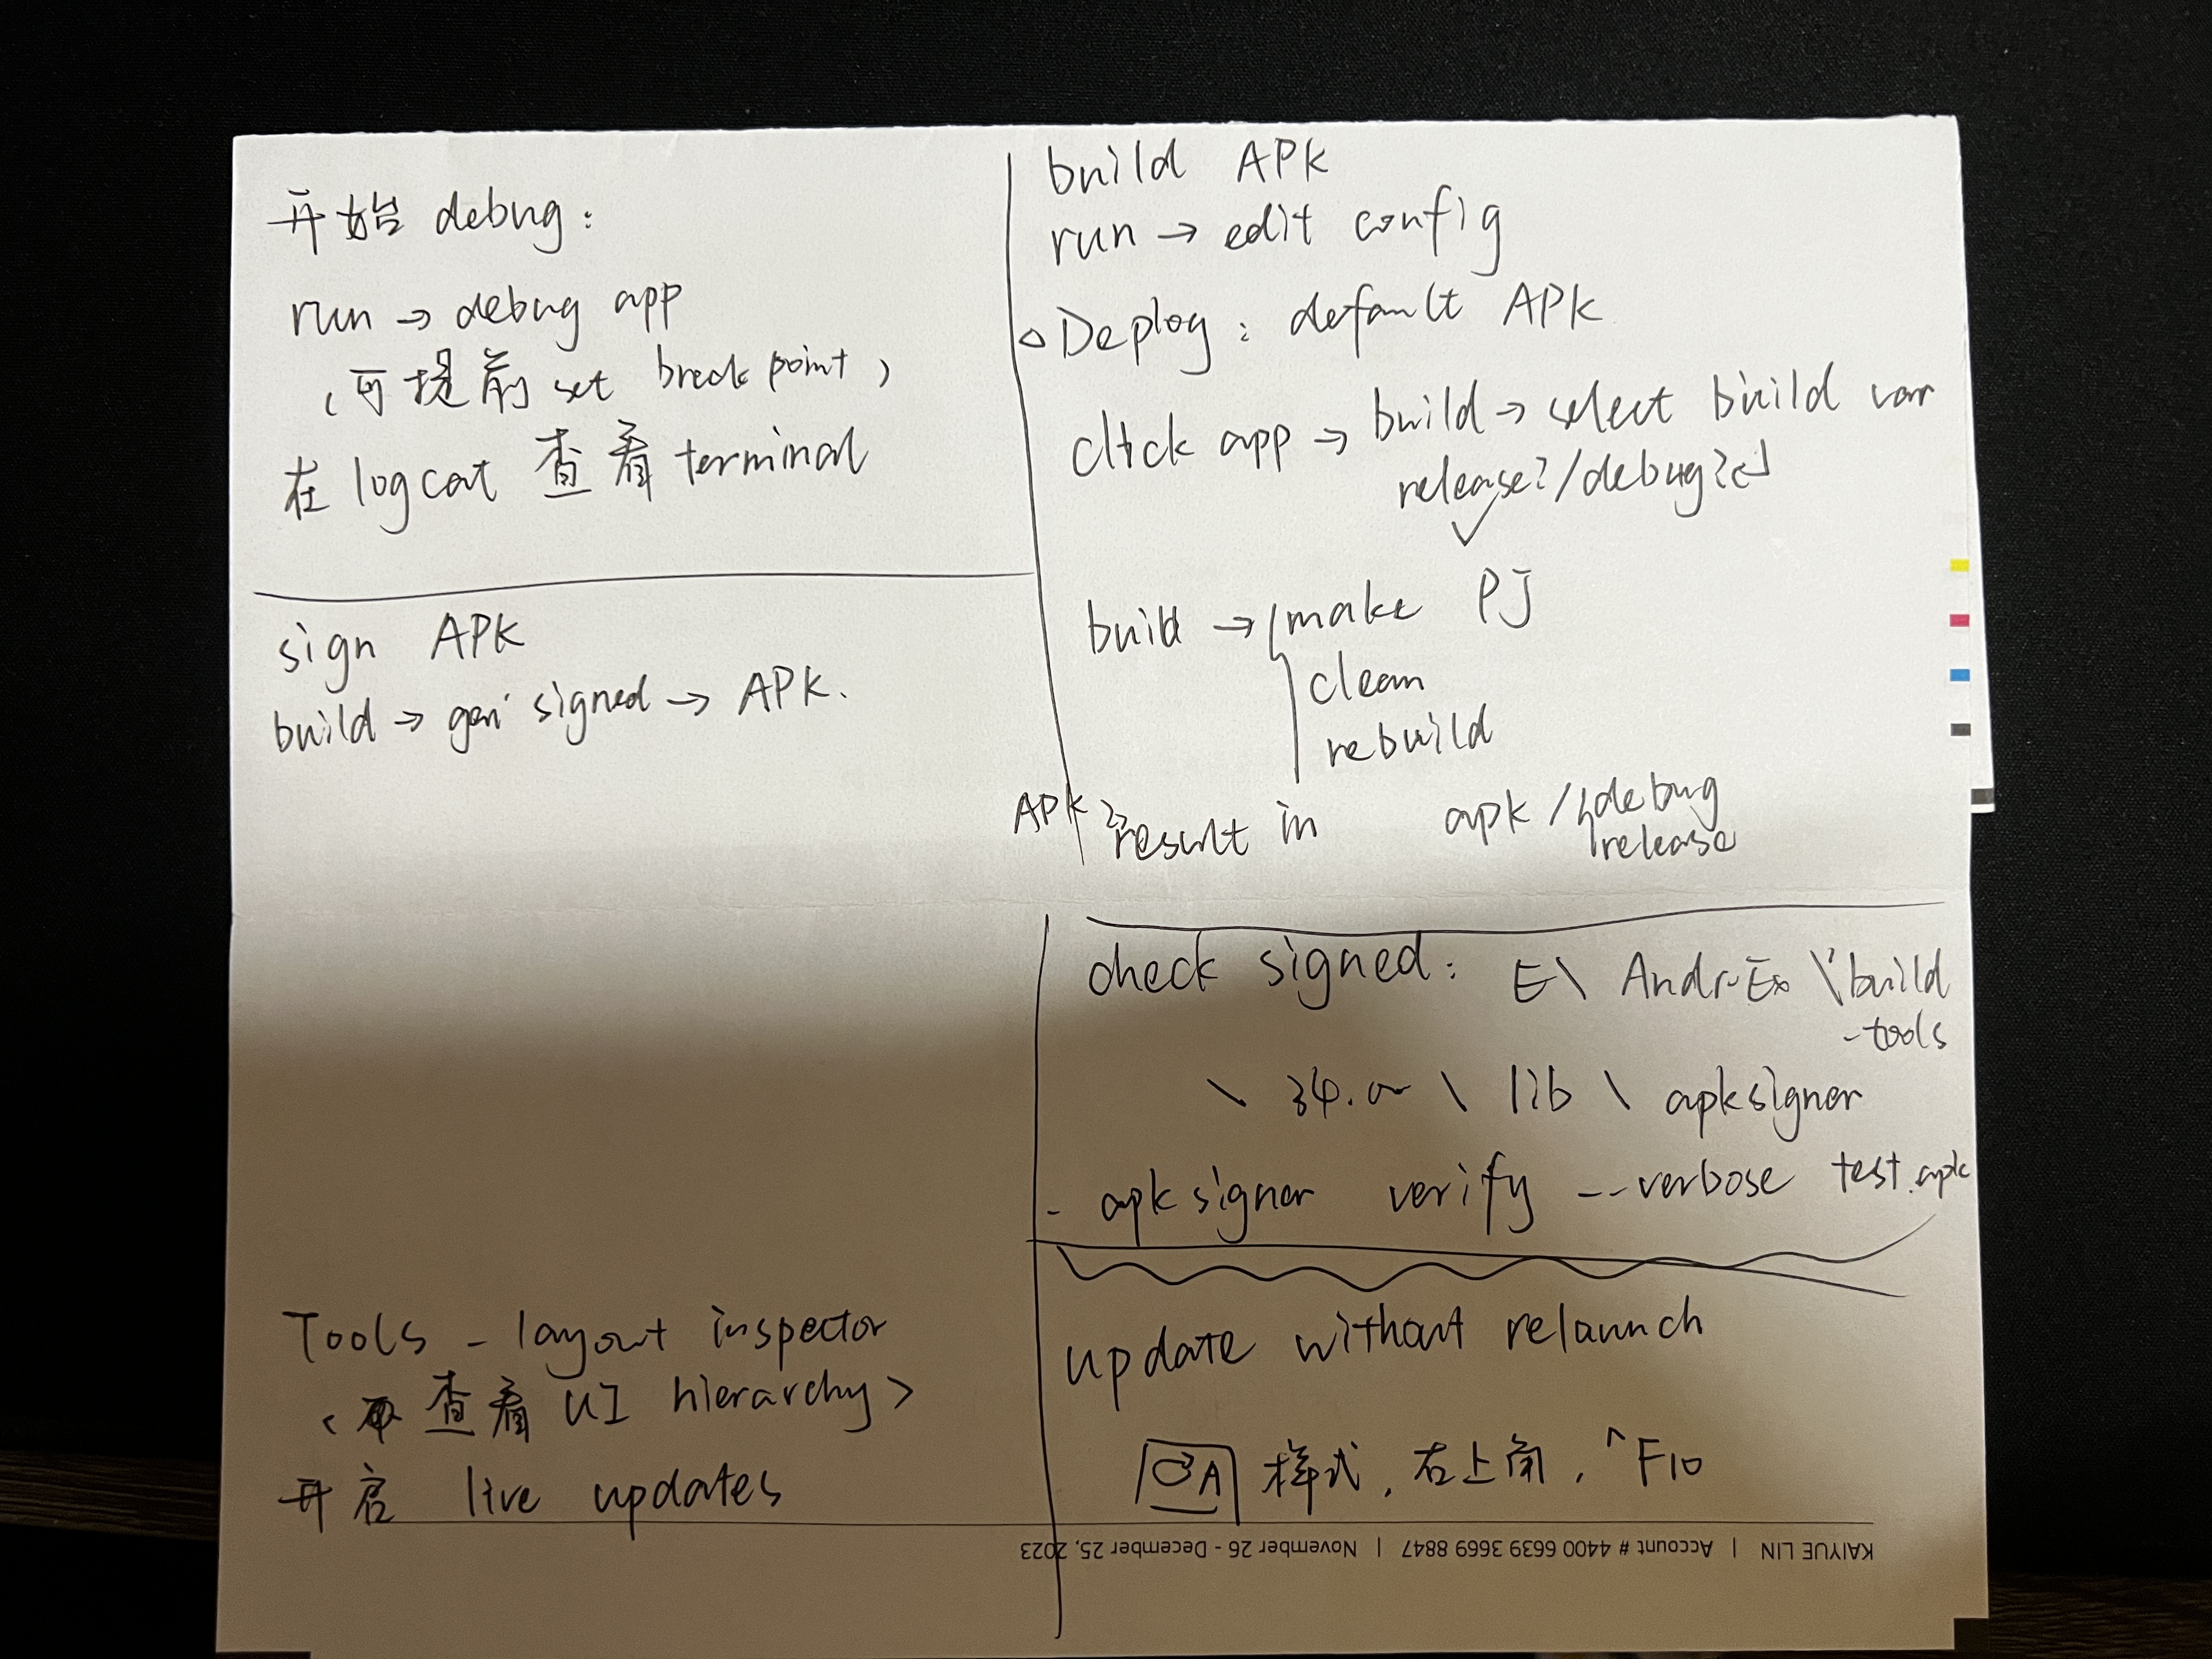 开始 debug:
run → debug app
(可提前 set breakpoint)
在 logcat 查看 terminal
sign APK
build → gen' signed → APK.
Tools - layout inspector
<查看 UI hierarchy>
开启 live updates
build APK
run → edit config
Deploy: default APK
click app → build → select build var
release?/debug
build → make PJ
clean
rebuild
APK result in apk/debug
release
check signed: E\ \build
-tools
\ \ lib \ apksigner
- apksigner verify --verbose test.apk
update without relaunch
样式, 右上角, F10
KAIYUE LIN | Account # 4400 6639 3669 8847 | November 26 - December 25, 2023